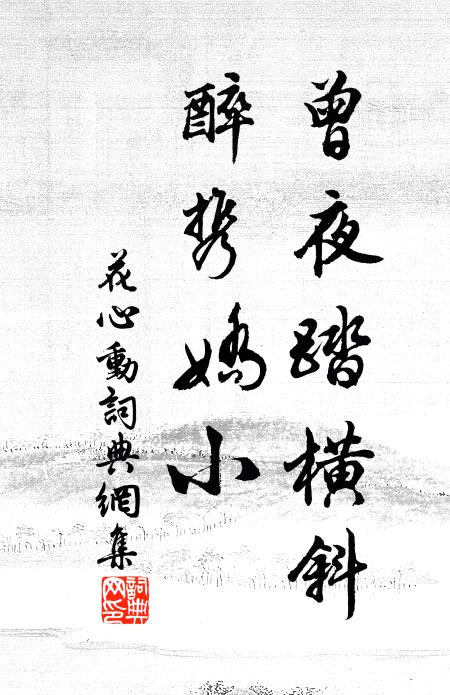 曾夜踏橫斜
醉携嬌小
花心動詞典網集
詞典網印